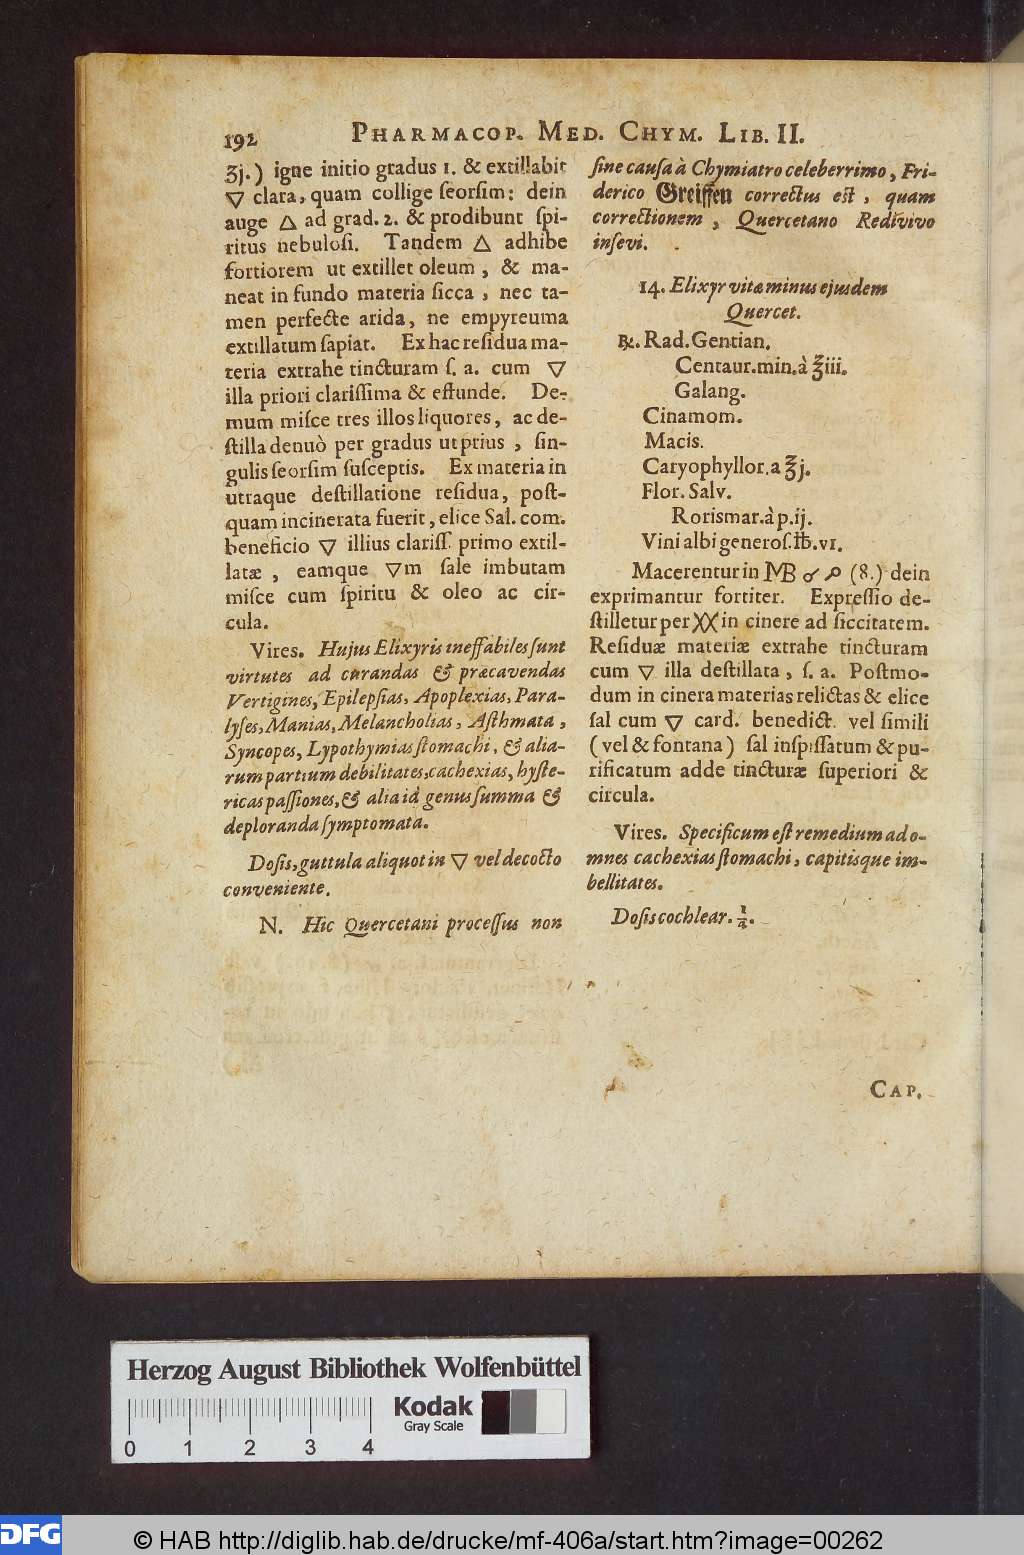 192 PHARMACOP. MED. CHYM. LIB. II.
ʒj.) igne initio gradus 1. & extillabit
🜄 clara, quam collige ſeorſim: dein
auge 🜂 ad grad. 2. & prodibunt ſpi-
ritus nebuloſi. Tandem 🜂 adhibe
fortiorem ut extillet oleum, & ma-
neat in fundo materia ſicca, nec ta-
men perfecte arida, ne empyreuma
extillatum ſapiat. Ex hac reſidua ma-
teria extrahe tincturam ſ. a. cum 🜄
illa priori clariſſima & effunde. De-
mum miſce tres illos liquores, ac de-
ſtilla denuò per gradus ut prius, ſin-
gulis ſeorſim ſuſceptis. Ex materia in
utraque deſtillatione reſidua, poſt-
quam incinerata fuerit, elice Sal. com.
beneficio 🜄 illius clariſſ. primo extil-
latæ, eamque 🜄m ſale imbutam
miſce cum ſpiritu & oleo ac cir-
cula.
Vires. Hujus Elixyris ineffabiles ſunt
virtutes ad curandas & præcavendas
Vertigines, Epilepſias, Apoplexias, Para-
lyſes, Manias, Melancholias, Aſthmata,
Syncopes, Lypothymias ſtomachi, & alia-
rum partium debilitates, cachexias, hyſte-
ricas paſſiones, & alia id genus ſumma &
deploranda ſymptomata.
Doſis, guttula aliquot in 🜄 vel decocto
conveniente.
N. Hic Quercetani proceſſus non
ſine cauſa à Chymiatro celeberrimo, Fri-
derico Greiſſen correctus eſt, quam
correctionem, Quercetano Redivivo
inſevi.
14. Elixyr vitæ minus ejusdem
Quercet.
℞. Rad. Gentian.
Centaur. min. à ℥iii.
Galang.
Cinamom.
Macis.
Caryophyllor. a ℥j.
Flor. Salv.
Rorismar. à p. ij.
Vini albi generoſ. ℔. vi.
Macerentur in MB ☌ ☍ (8.) dein
exprimantur fortiter. Expreſſio de-
ſtilletur per XX in cinere ad ſiccitatem.
Reſiduæ materiæ extrahe tincturam
cum 🜄 illa deſtillata, ſ. a. Poſtmo-
dum in cinera materias relictas & elice
ſal cum 🜄 card. benedict. vel ſimili
(vel & fontana) ſal inſpiſſatum & pu-
rificatum adde tincturæ ſuperiori &
circula.
Vires. Specificum eſt remedium ad o-
mnes cachexias ſtomachi, capitisque im-
bellitates.
Doſis cochlear. ½.
CAP.
Herzog August Bibliothek Wolfenbüttel
Kodak
Gray Scale
0 1 2 3 4
DFG
© HAB http://diglib.hab.de/drucke/mf-406a/start.htm?image=00262